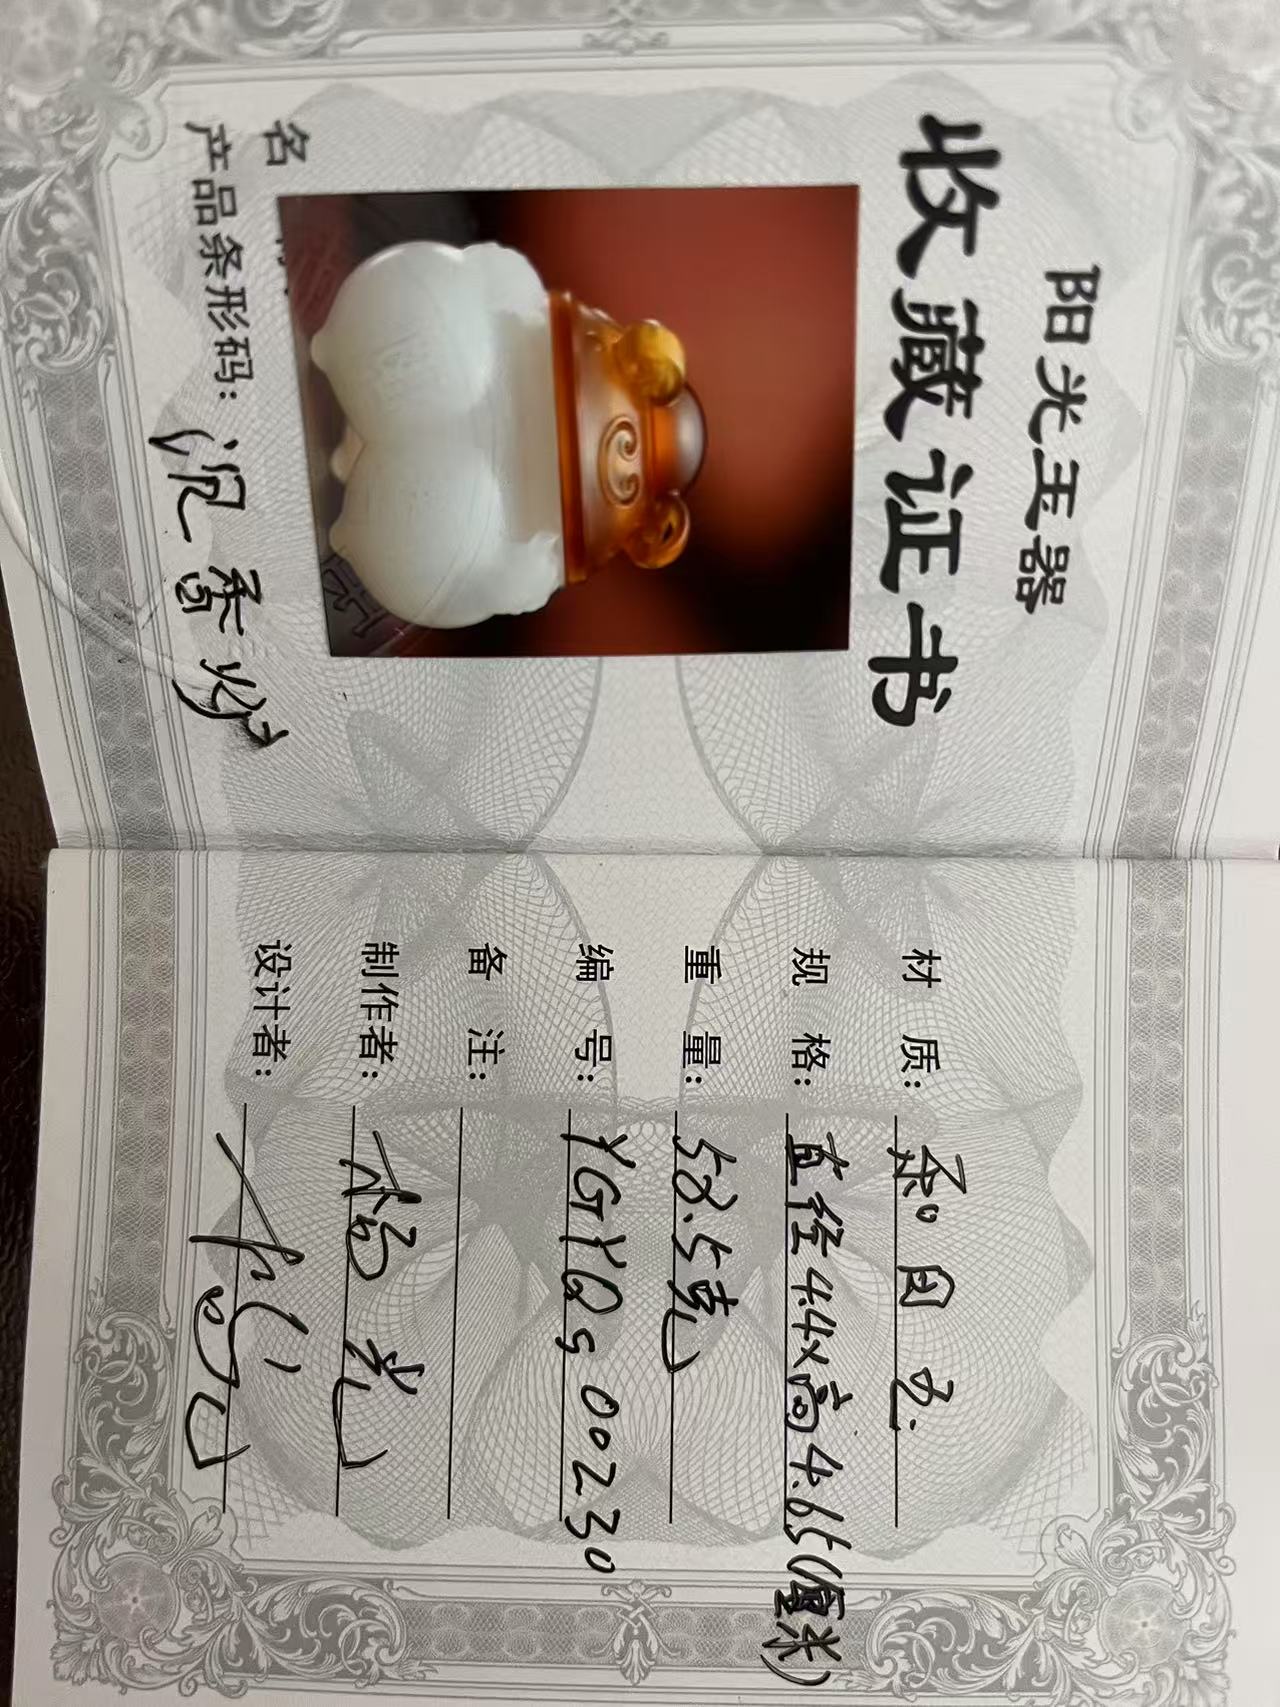 阳光玉器
收藏证书
名
产品条形码：
沉香炉
材 质：和田玉
规 格：直径4.4×高4.65（厘米）
重 量：58.5克
编 号：YGYQs 00230
备 注：
制作者：杨光
设计者：